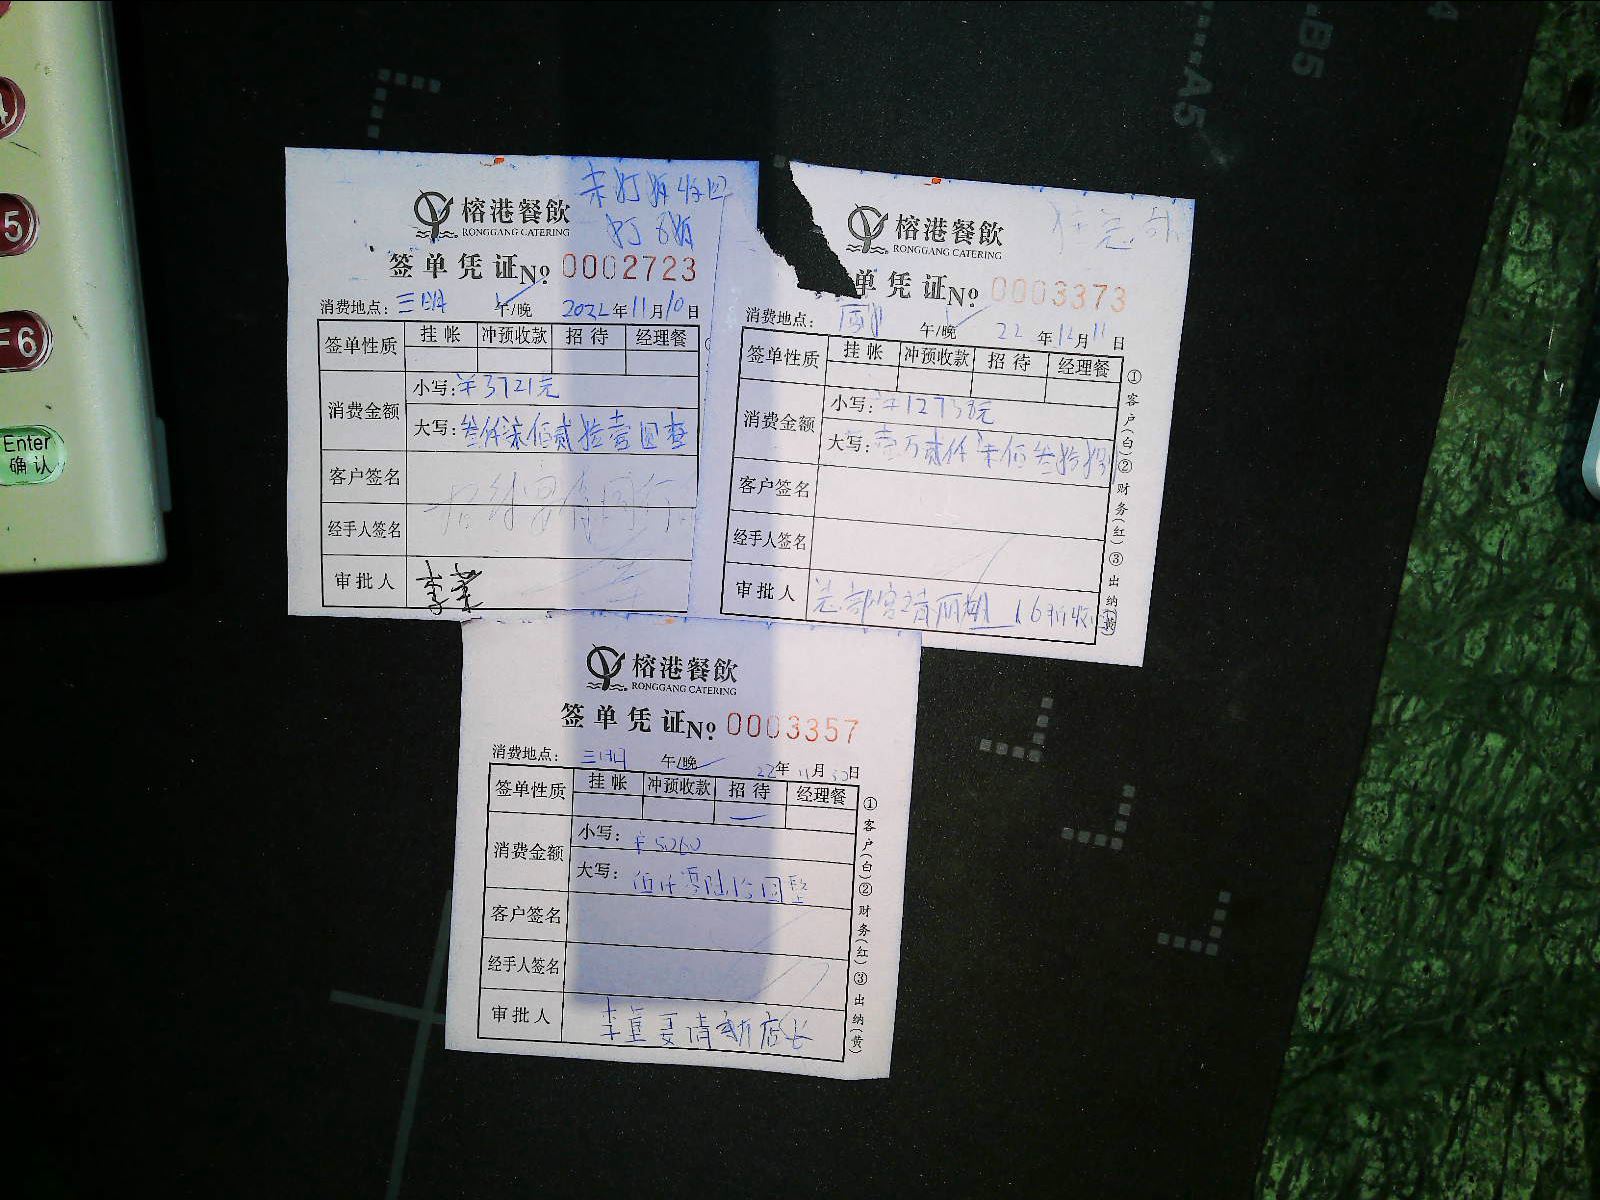 5
F6
Enter
确认
A5
B5
未打折收回
打8折
榕港餐飲
RONGGANG CATERING
签单凭证No 0002723
消费地点: 三明 午/晚 2022年11月10日
签单性质 挂帐 冲预收款 招待 经理餐
消费金额 小写: ¥3721元
大写: 叁仟柒佰贰拾壹圆整
客户签名
经手人签名
审批人
榕港餐飲
RONGGANG CATERING
单凭证No 0003373
消费地点: 午/晚 22年12月11日
签单性质 挂帐 冲预收款 招待 经理餐
消费金额 小写:
大写: 壹万贰仟柒佰叁拾
客户签名
经手人签名
审批人
①客户(白)②财务(红)③出纳(黄)
榕港餐飲
RONGGANG CATERING
签单凭证No 0003357
消费地点: 三明 午/晚 22年11月30日
签单性质 挂帐 冲预收款 招待 经理餐
消费金额 小写: ¥5060
大写: 伍仟零陆拾圆整
客户签名
经手人签名
审批人 店长
①客户(白)②财务(红)③出纳(黄)